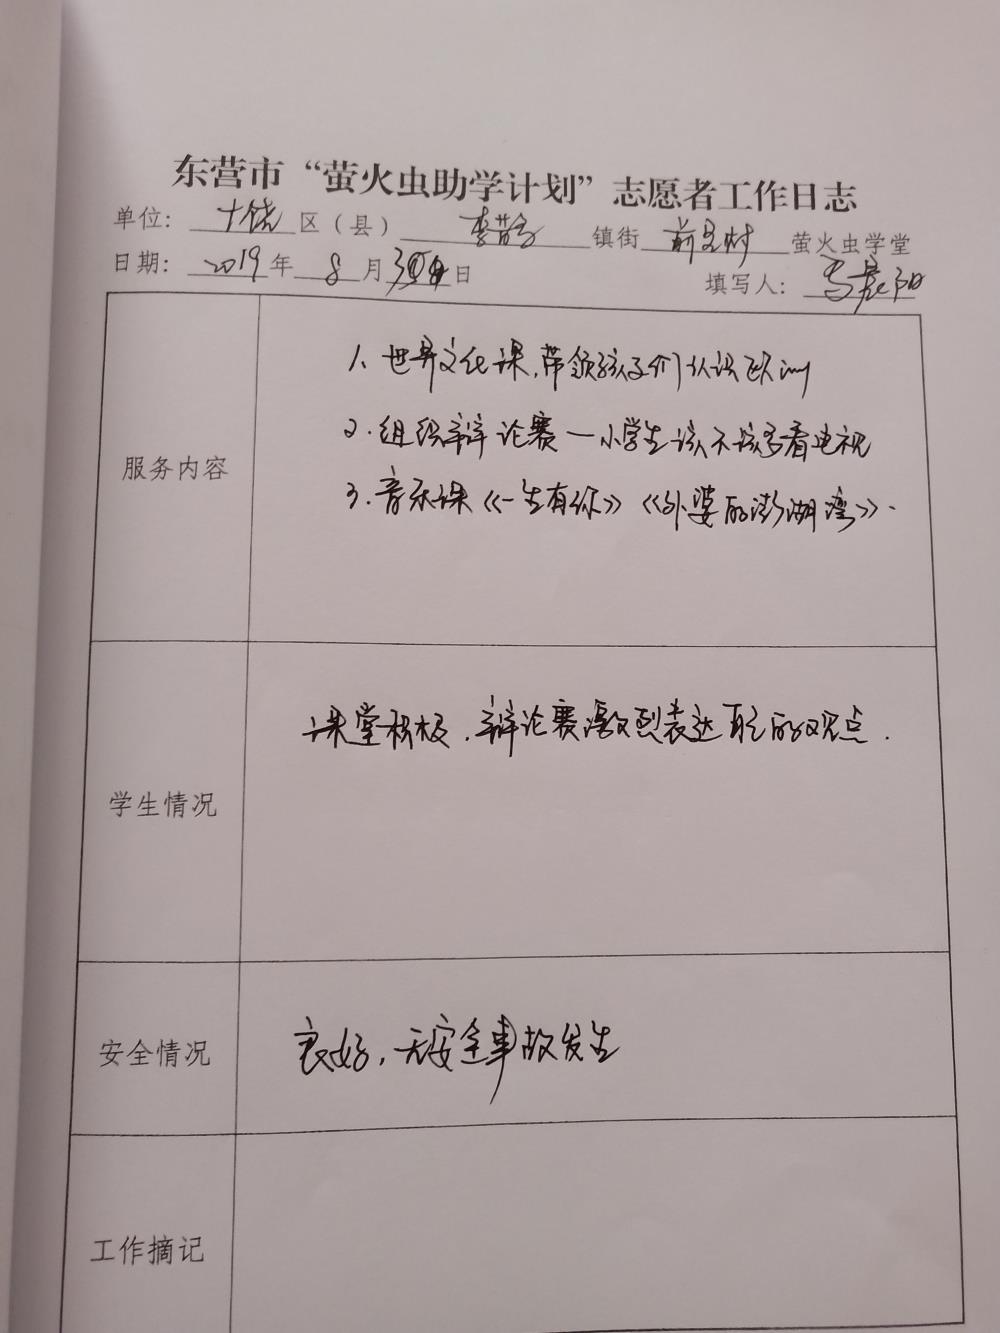 东营市“萤火虫助学计划”志愿者工作日志
单位: 广饶 区(县) 李鹊 镇街 村 萤火虫学堂
日期: 2019 年 8 月 日 填写人:
服务内容
1. 世界文化课,带领孩子们认识欧洲
2. 组织辩论赛—小学生该不该多看电视
3. 音乐课《一生有你》《外婆的澎湖湾》.
学生情况
课堂积极,辩论赛激烈表达自己的观点.
安全情况
良好,无安全事故发生
工作摘记